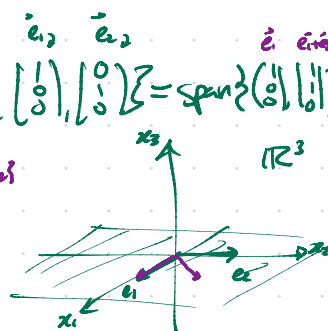 e⃗₁, e⃗₂, e⃗₁ e⃗₁+e
, [1 0 0], [0 1 0]} = span{(1 0 0), (1 1 0)
x₃ ℝ³
}
x₂
e₁ e₂
x₁